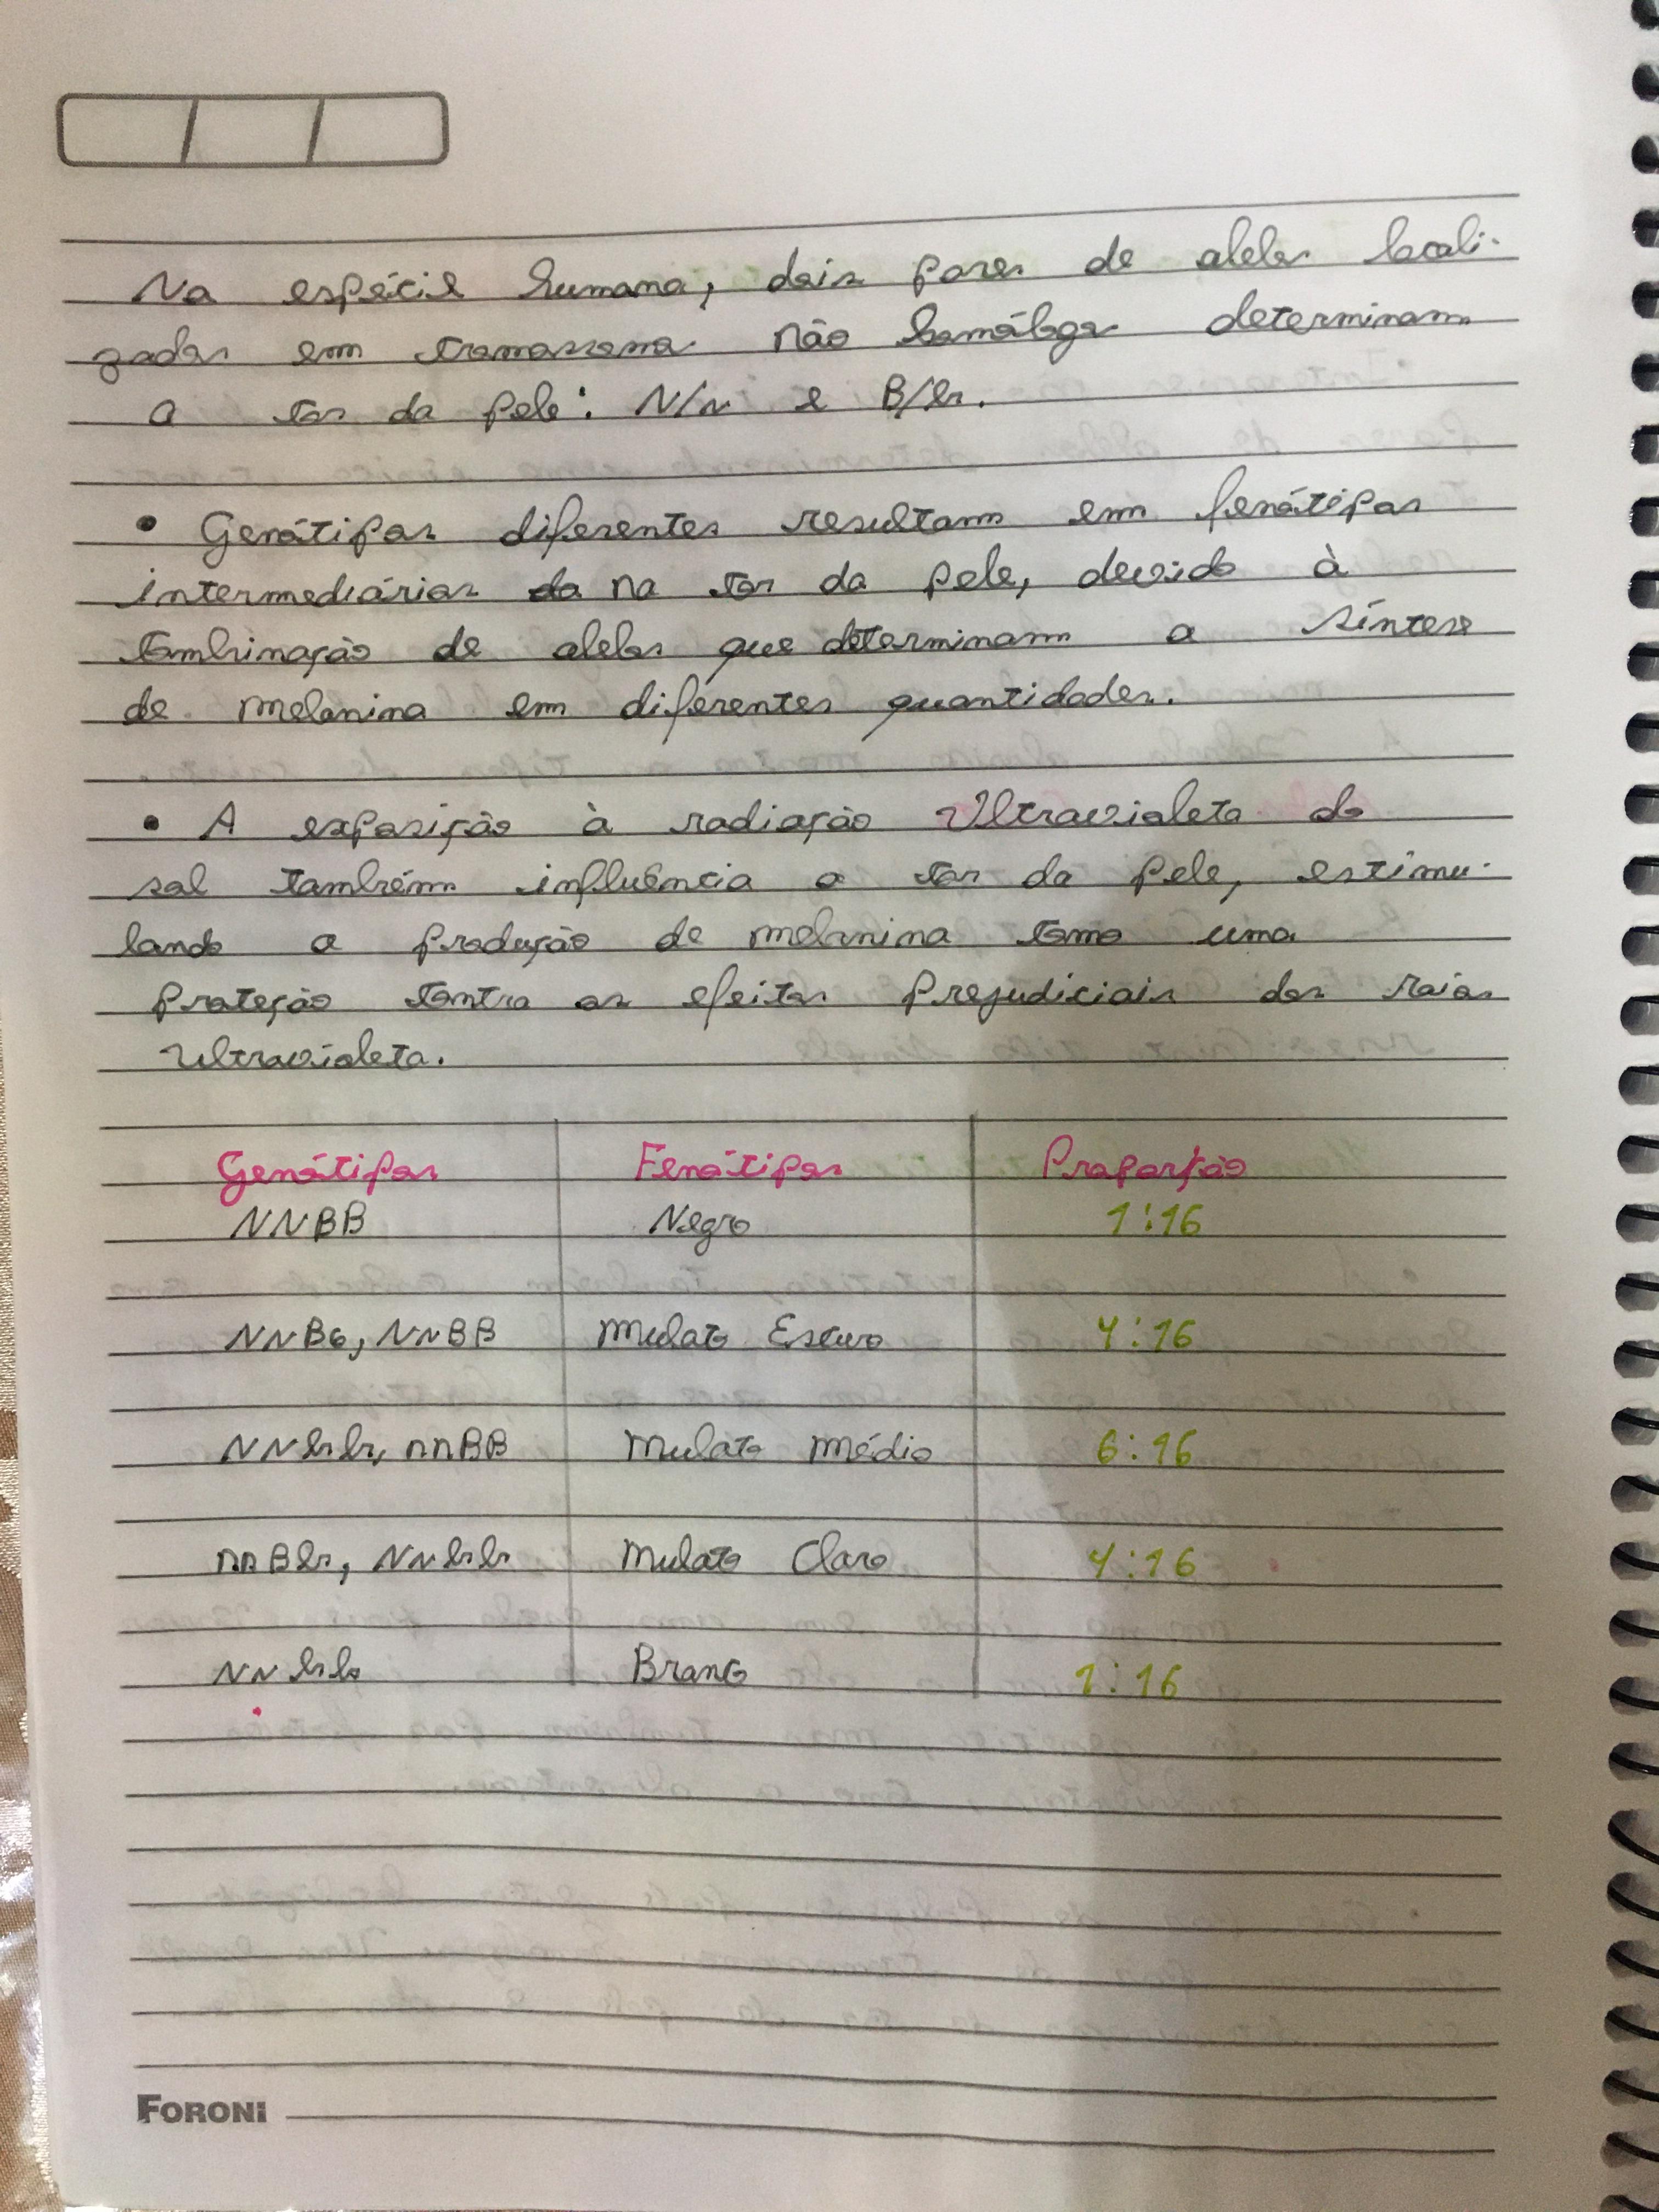 Na espécie humana, dois pares de alelos locali-
zados em cromossomos não homólogos determinam
a cor da pele: N/n e B/b.
• Genótipos diferentes resultam em fenótipos
intermediários da na cor da pele, devido à
combinação de alelos que determinam a síntese
de melanina em diferentes quantidades.
• A exposição à radiação Ultravioleta do
sol também influência a cor da pele, estimu-
lando a produção de melanina como uma
proteção contra os efeitos prejudiciais dos raios
ultravioleta.
Genótipos Fenótipos Proporção
NNBB Negro 1:16
NNBb, NnBB Mulato Escuro 4:16
NNbb, nnBB Mulato Médio 6:16
nnBb, Nnbb Mulato Claro 4:16
nnbb Branco 1:16
FORONI